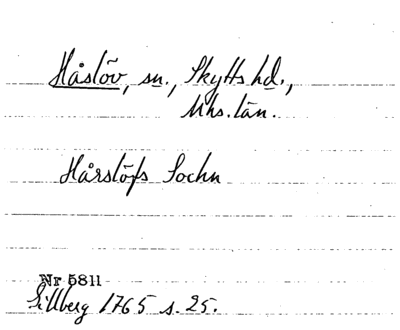 Håslöv, sn., Skytts hd.,
Mhs. län.
Hårslöfs Sochn
Nr 5811
Gillberg 1765 s. 25.